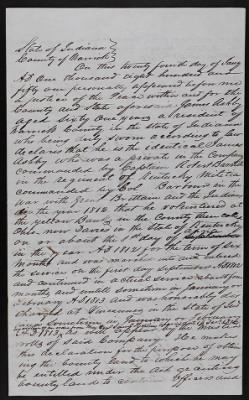 State of Indiana }
County of Warrick }
On this twenty fourth day of
AD one thousand eight hundred and
fifty one personally appeared before me
a Justice of the Peace within and for the
County and State aforesaid James Ashby
aged Sixty One years a resident of
Warrick County in the State of Indiana
who being duly Sworn according to Law
declares that he is the identical James
Ashby who was a private in the Company
commanded by Captain
in the regiment of Kentucky Militia
Commanded by Col Barbour in the
War with Great Brittain
the year 1812 that he volunteered at
the yellow Banks in the County then called
Ohio now Davies in the State of Kentucky
on or about the day of September
in the year AD 1812 for the term of Six
months and was mustered into and entered
the service on the first day September AD 1812
and continued in actual Service
months and until sometime in January or
February AD 1813 and was honorably dis
charged at Vincennes in the State of
sometime in January or February
rolls of said Company He makes
this declaration for the purpose of obtain
ing the bounty land to which he may
be entitled under the Act granting
bounty land to certain officers and